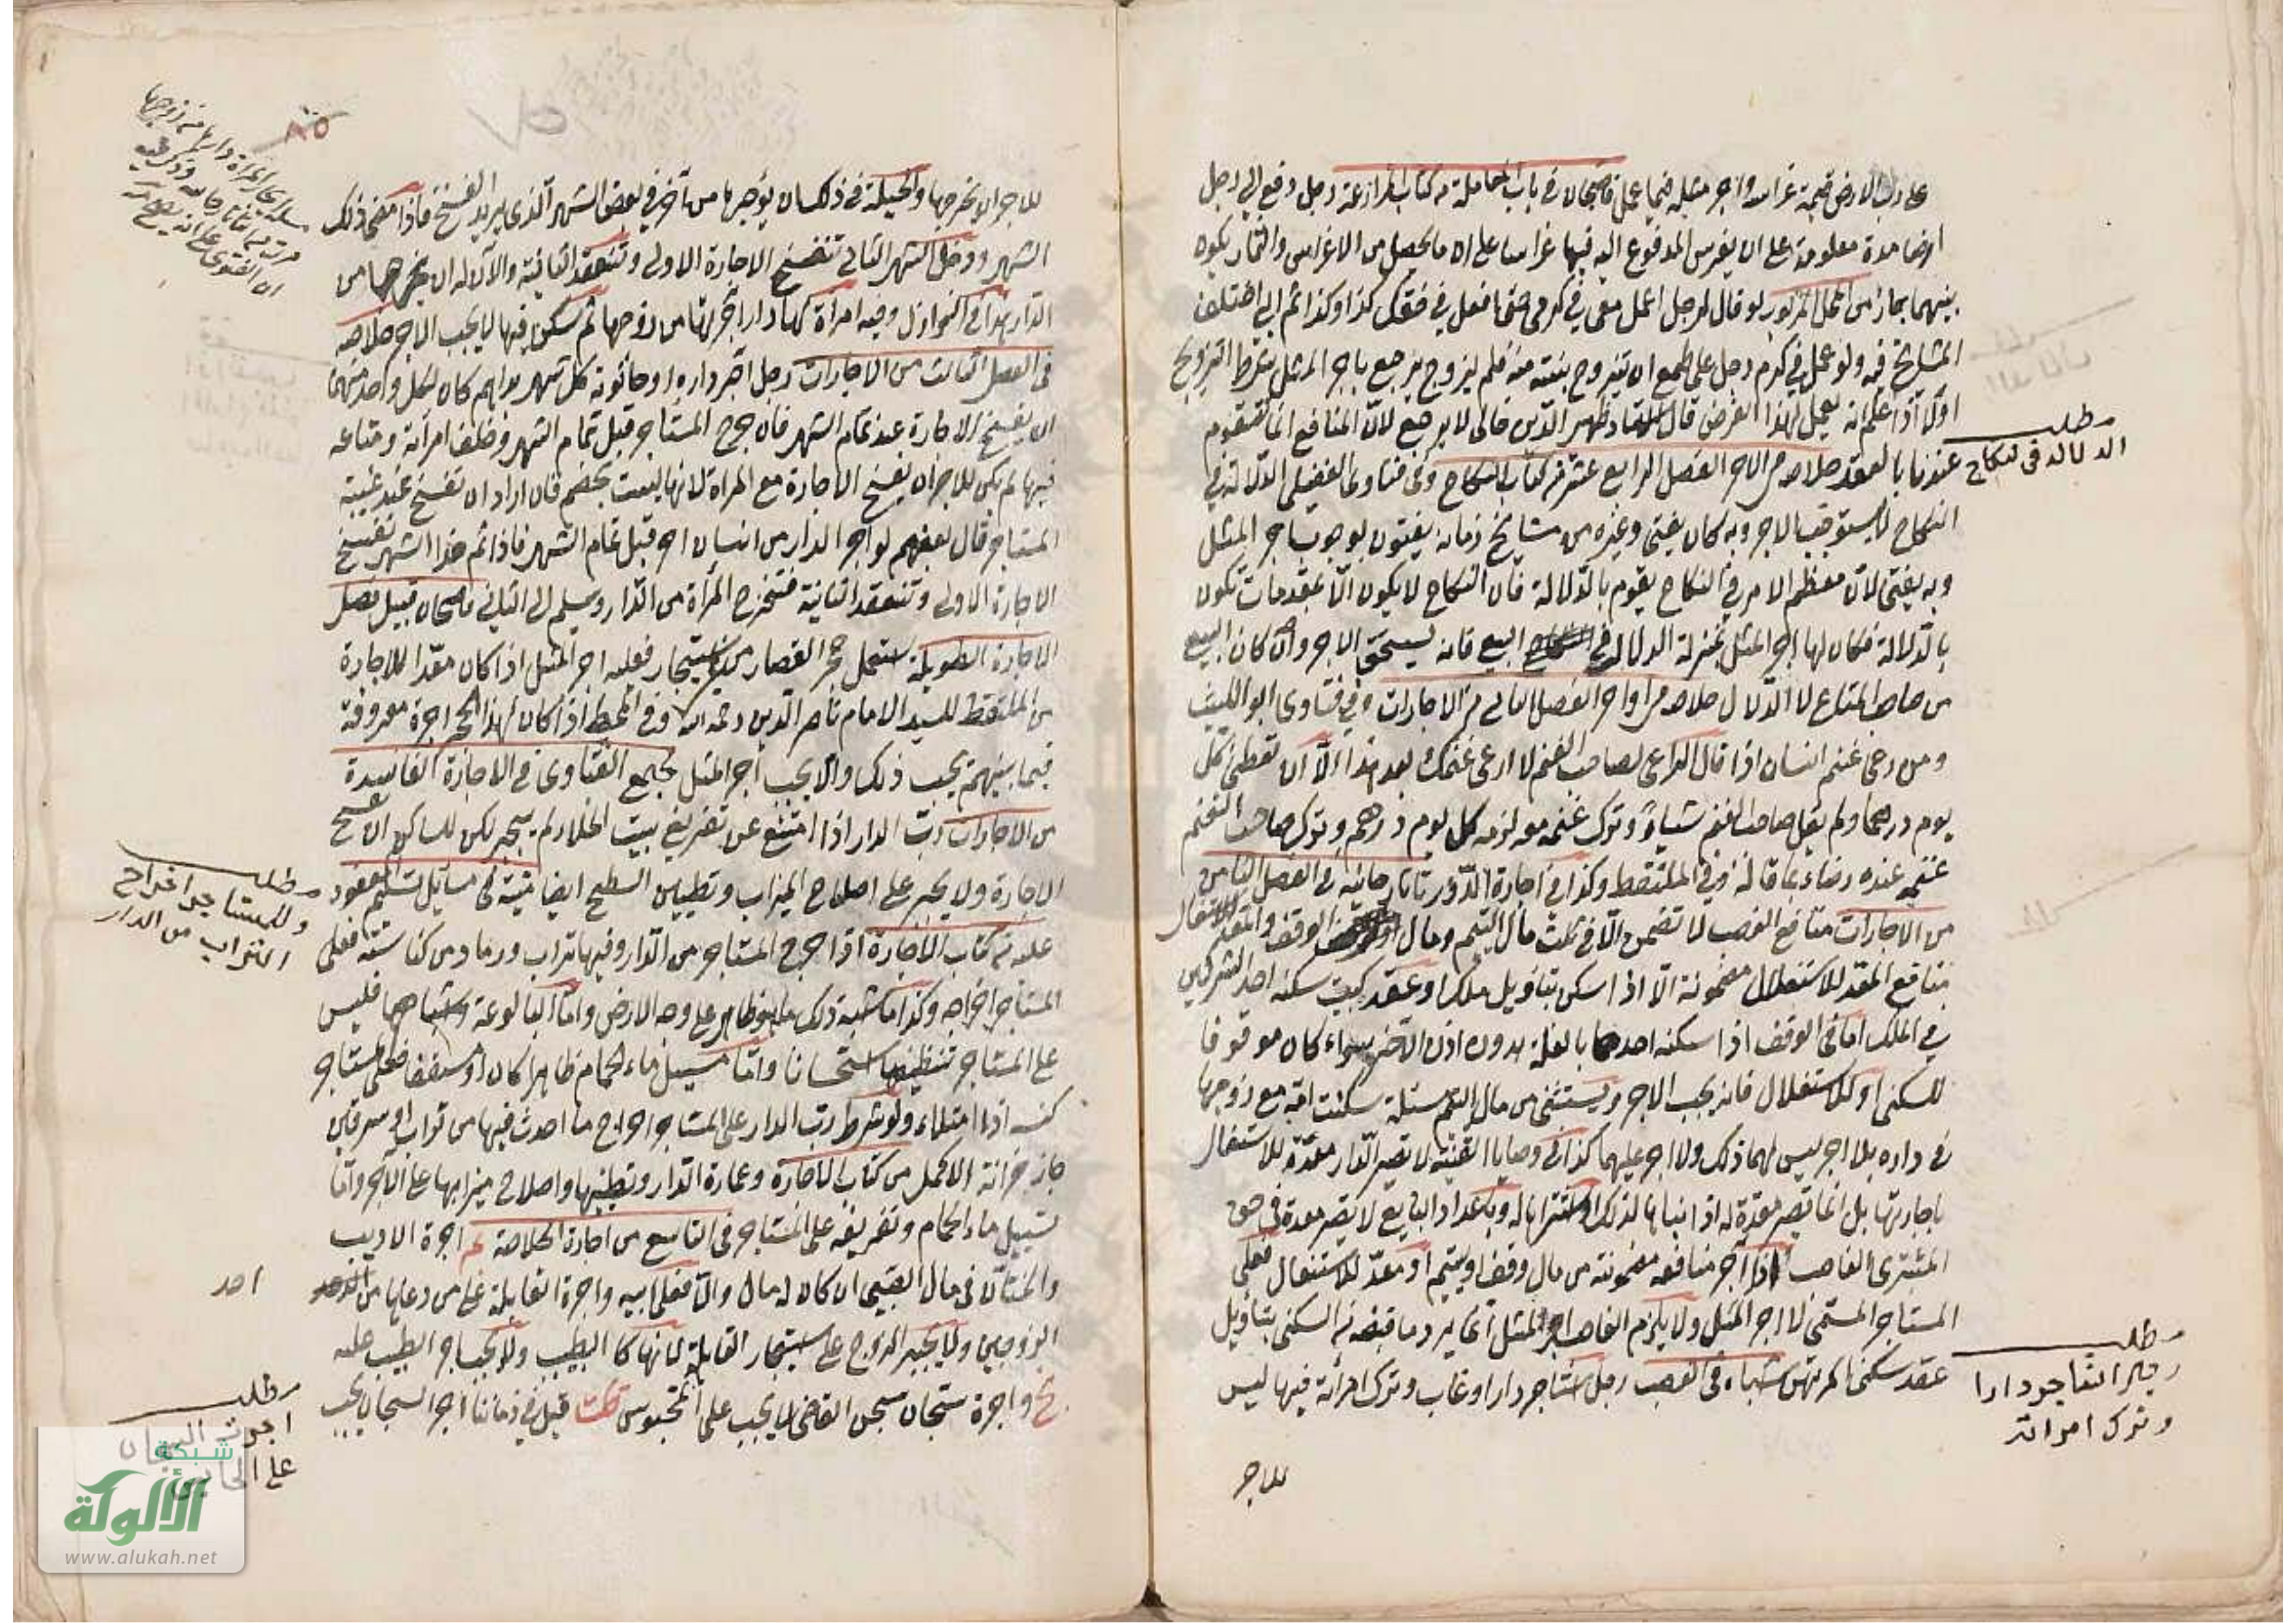 على رب الارض قيمة غراسه واجر مثله فيما عمل قاضيخان في باب المعاملة من كتاب المزارعة رجل دفع الى رجل
ارضا مدة معلومة على ان يغرس المدفوع اليه فيها غراسا على ان ما يحصل من الاغراس والثمار يكون
بينهما جاز من المحل المزبور لو قال لرجل اعمل معي في كرمي حتى افعل في حقك كذا وكذا ثم ابى اختلف
المشايخ فيه ولو عمل في كرم رجل على طمع ان يتزوج بنته منه فلم يزوج يرجع باجر المثل شرط التزويج
اولا اذا علم انه يعمل لهذا الغرض قال الاستاد ظهير الدين خالى لا يرجع لان المنافع انما تتقوم
عندنا بالعقد خلاصه من الاجر الفصل الرابع عشر من كتاب النكاح وفي فتاوى الفضلى الدلالة في
مطلب
الدلالة فى النكاح
النكاح لا يستوجب الاجر وبه كان يفتى وغيره من مشايخ زمانه يفتون بوجوب اجر المثل
وبه يفتى لان معظم الامر في النكاح يقوم بالدلالة فان النكاح لا يكون الا بمقدمات تكون
بالدلالة فكان لها اجر المثل بمنزلة الدلال في البيع فانه يستحق الاجر وان كان البيع
من صاحب المتاع لا الدلال خلاصه من اواخر الفصل الثاني من الاجارات وفي فتاوى ابو الليث
ومن رعى غنم انسان اذا قال الراعى لصاحب الغنم لا ارعى غنمك بعد هذا الا ان تعطينى كل
يوم درهما ولم يقل صاحب الغنم شيأ وترك غنمه معه لزمه كل يوم درهم وترك صاحب الغنم
غنمه عنده رضاء بما قاله في الملتقط وكذا في اجارة الدور تاتارخانيه في الفصل الثامن
من الاجارات منافع الغصب لا تضمن الا في ثلث مال اليتيم ومال الوقف والمعد للاستغلال
منافع المعد للاستغلال مضمونة الا اذا سكن بتاويل ملك او عقد كبيت سكنه احد الشركين
في الملك اما في الوقف اذا سكنه احدهما بالغلة بدون اذن الاخر سواء كان موقوفا
للسكنى او للاستغلال فانه يجب الاجر ويستثنى من مال اليتيم مسئلة سكنت امه مع زوجها
في داره بلا اجر ليس لهما ذلك ولا اجر عليهما كذا في وصايا القنية لا تصير الدار معدة للاستغلال
باجارتها بل انما تصير معدة له اذا بناها لذلك او اشتراها له وباعداد البايع لا تصير معدة في حق
المشترى الغاصب اذا اجر منافعه مضمونته من مال وقف او يتيم او معد للاستغلال فعلى
المستاجر المسمى لا اجر المثل ولا يلزم الغاصب اجر المثل اى يرد ما قبضه من السكنى بتاويل
عقد سكنى المرتهن اشباه في الغصب رجل استاجر دارا وغاب وترك امرأته فيها ليس
مطلب
وترك امرأته
للاجر
للاجر ان يخرجها والحيلة في ذلك ان يؤجرها من آخر في بعض الشهر الذى يريد الفسخ فاذا مضى ذلك
الشهر ودخل الشهر الثانى تنفسخ الاجارة الاولى وتنعقد الثانية والا لا له ان يخرجها من
الدار هذا في النوازل وفيه امرأة لها دار اجرتها من زوجها ثم سكن فيها لا يجب الاجر خلاصه
فى الفصل الثالث من الاجارات رجل آجر داره او حانوته كل شهر بدراهم كان لكل واحد منهما
ان يفسخ الاجارة عند تمام الشهر فان خرج المستاجر قبل تمام الشهر وخلف امرأته ومتاعه
فيها لم يكن للاجر ان يفسخ الاجارة مع المرأة لانها ليست بخصم فان اراد ان تفسخ عند غيبة
المستاجر قال بعضهم لو اجر الدار من انسان اخر قبل تمام الشهر فاذا تم هذا الشهر تفسخ
الاجارة الاولى وتنعقد الثانية فتخرج المرأة من الدار ويسلم الى الثانى قاضيخان قبيل فصل
الاجارة الطويلة استعمل حجر القصار من غير استيجار فعليه اجر المثل اذا كان معدا للاجارة
من الملتقط للسيد الامام ناصر الدين رحمه الله وفى المحيط اذا كان لهذا الحجر اجرة معروفة
فيما بينهم يجب ذلك والا يجب أجر المثل مجمع الفتاوى فى الاجارة الفاسدة
من الاجارات رب الدار اذا امتنع عن تفريغ بيت الخلاء لم يجبر لكن للساكن ان يفسخ
الاجارة ولا يجبر على اصلاح الميزاب وتطيين السطح ايضا منية فى مسائل تسليم المعقود
عليه من كتاب الاجارة اذا خرج المستاجر من الدار وفيها تراب ورماد من كناسته فعلى
مطلب
وللمستاجر اخراج
التراب من الدار
المستاجر اخراجه وكذا ما اشبه ذلك مما هو ظاهر على وجه الارض واما البالوعة واشباهها فليس
على المستاجر تنظيفها استحسانا واما مسيل ماء الحمام ظاهرا كان او مسقفا فعلى المستاجر
كنسه اذا امتلاء ولو شرط رب الدار على المستاجر اخراج ما احدث فيها من تراب او سرقين
جاز خزانة الاكمل من كتاب الاجارة وعمارة الدار وتطيينها واصلاح ميزابها على الآجر واما
تسييل ماء الحمام وتفريغه على المستاجر فى التاسع من اجارة الخلاصة اجرة الاديب
والختان فى مال الصبى ان كان له مال والا فعلى ابيه واجرة القابلة على من دعاها من احد
الزوجين ولا يجبر الزوج على استيجار القابلة لانها كالطبيب ولا يجب اجر الطبيب عليه
واجرة سجان سجن القاضى لا يجب على المحبوس قلت قيل في زماننا اجر السجان يجب
مطلب
اجرت السجان